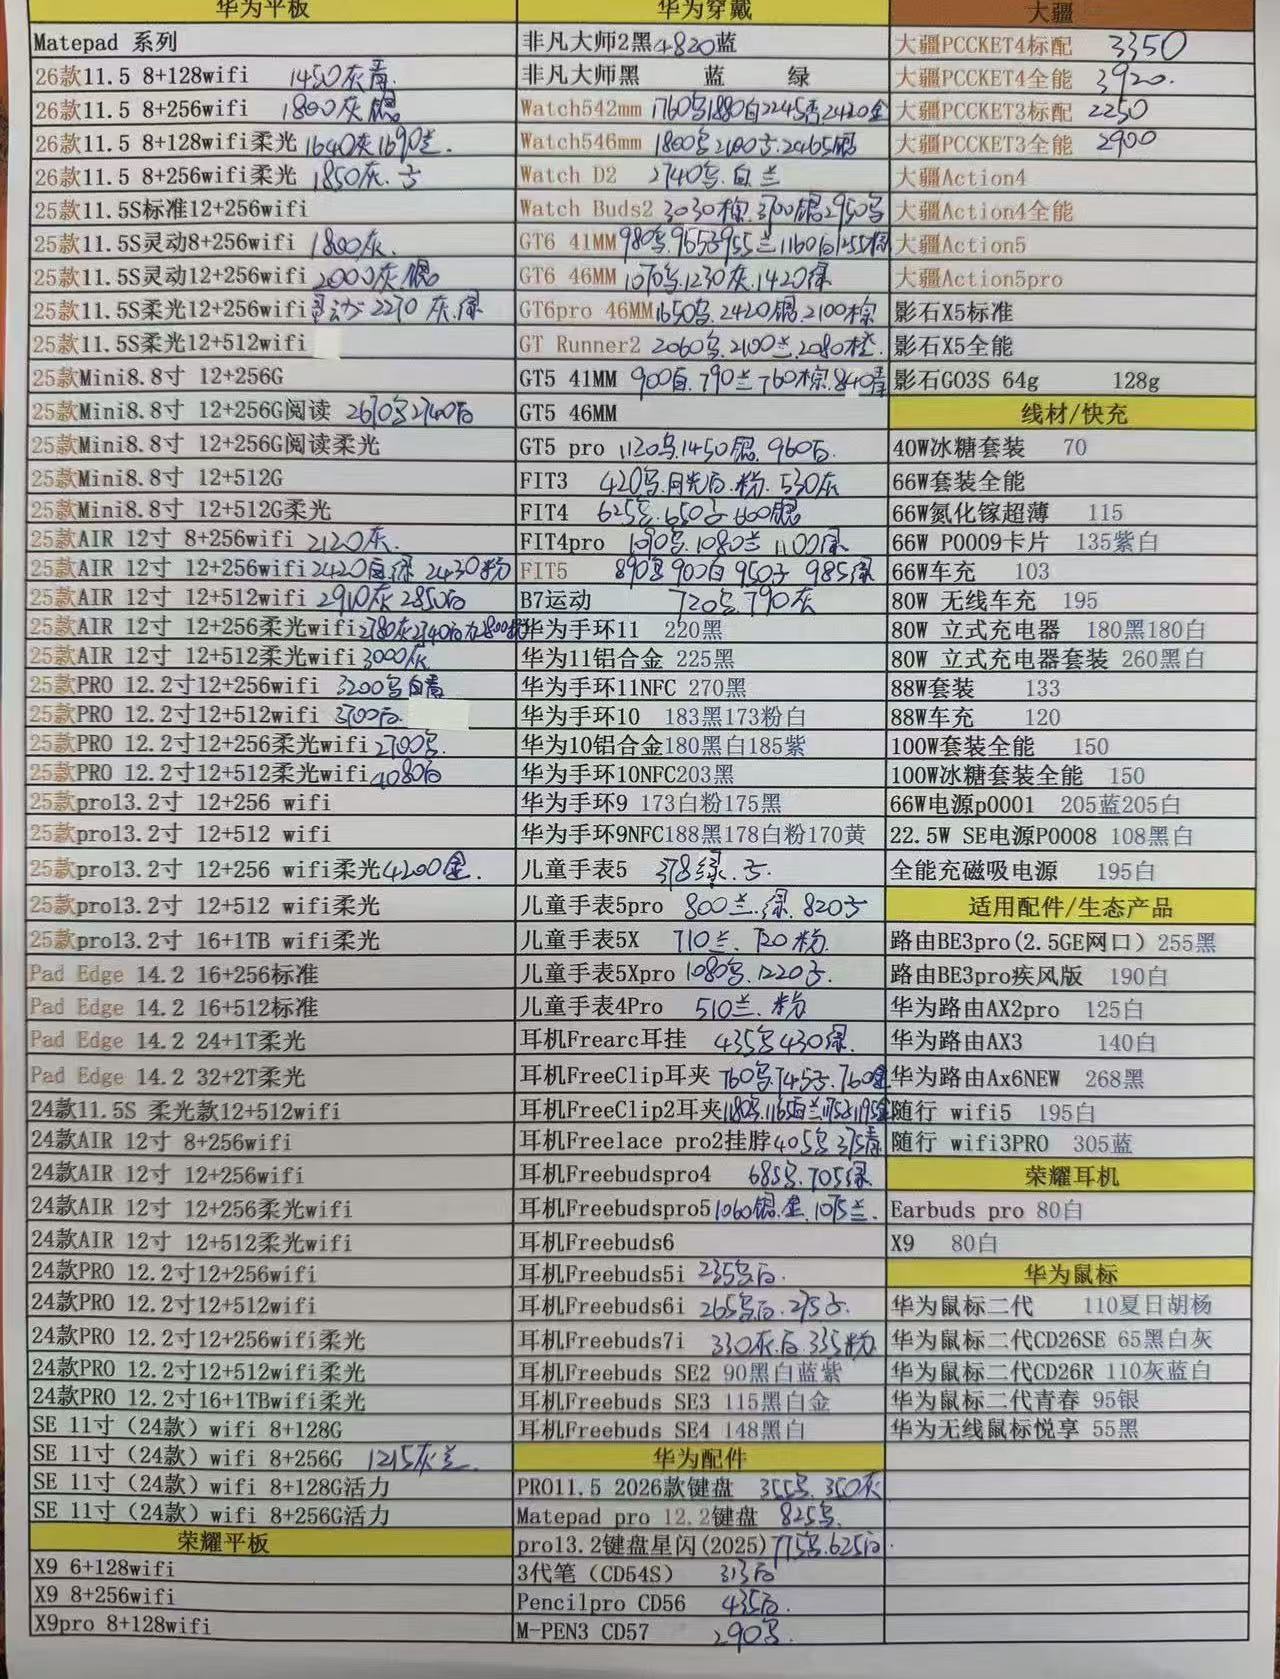 华为平板
Matepad 系列
26款11.5 8+128wifi 1450灰青
26款11.5 8+256wifi 1800灰银
26款11.5 8+128wifi柔光 1640灰1690兰.
26款11.5 8+256wifi柔光 1850灰.子
25款11.5S标准12+256wifi
25款11.5S灵动8+256wifi 1800灰.
25款11.5S灵动12+256wifi 2000灰.银
25款11.5S柔光12+256wifi 2270 灰.绿
25款11.5S柔光12+512wifi
25款Mini8.8寸 12+256G
25款Mini8.8寸 12+256G阅读 2670乌2740白
25款Mini8.8寸 12+256G阅读柔光
25款Mini8.8寸 12+512G
25款Mini8.8寸 12+512G柔光
25款AIR 12寸 8+256wifi 2120灰.
25款AIR 12寸 12+256wifi 2420白.绿 2430粉
25款AIR 12寸 12+512wifi 2910灰 2850白
25款AIR 12寸 12+256柔光wifi 2780灰2740白
25款AIR 12寸 12+512柔光wifi 3000灰
25款PRO 12.2寸12+256wifi 3200乌白青
25款PRO 12.2寸12+512wifi 3700白.
25款PRO 12.2寸12+256柔光wifi 2700乌.
25款PRO 12.2寸12+512柔光wifi 4080白
25款pro13.2寸 12+256 wifi
25款pro13.2寸 12+512 wifi
25款pro13.2寸 12+256 wifi柔光 4200金.
25款pro13.2寸 12+512 wifi柔光
25款pro13.2寸 16+1TB wifi柔光
Pad Edge 14.2 16+256标准
Pad Edge 14.2 16+512标准
Pad Edge 14.2 24+1T柔光
Pad Edge 14.2 32+2T柔光
24款11.5S 柔光款12+512wifi
24款AIR 12寸 8+256wifi
24款AIR 12寸 12+256wifi
24款AIR 12寸 12+256柔光wifi
24款AIR 12寸 12+512柔光wifi
24款PRO 12.2寸12+256wifi
24款PRO 12.2寸12+512wifi
24款PRO 12.2寸12+256wifi柔光
24款PRO 12.2寸12+512wifi柔光
24款PRO 12.2寸16+1TBwifi柔光
SE 11寸（24款）wifi 8+128G
SE 11寸（24款）wifi 8+256G 1215灰兰.
SE 11寸（24款）wifi 8+128G活力
SE 11寸（24款）wifi 8+256G活力
荣耀平板
X9 6+128wifi
X9 8+256wifi
X9pro 8+128wifi
华为穿戴
非凡大师2黑4820蓝
非凡大师黑 蓝 绿
Watch542mm 1760乌1880白2245杏2420金
Watch546mm 1800乌2100子.2465银
Watch D2 2740乌.白.兰
Watch Buds2 3030棕.3700银2950乌
GT6 41MM 980乌.965子955兰1160白1255棕
GT6 46MM 1070乌.1230灰.1420绿
GT6pro 46MM 1650乌.2420银.2100棕
GT Runner2 2060乌.2100兰.2080橙.
GT5 41MM 900白.790兰760棕.840青
GT5 46MM
GT5 pro 1120乌.1450银.960白.
FIT3 420乌.月光白.粉.530灰
FIT4 625乌.650子600银
FIT4pro 1090乌.1080兰 1100绿
FIT5 890乌 900白 950子 985绿
B7运动 720乌.790灰
华为手环11 220黑
华为11铝合金 225黑
华为手环11NFC 270黑
华为手环10 183黑173粉白
华为10铝合金180黑白185紫
华为手环10NFC203黑
华为手环9 173白粉175黑
华为手环9NFC188黑178白粉170黄
儿童手表5 378绿.子.
儿童手表5pro 800兰.绿.820子
儿童手表5X 710兰.720粉.
儿童手表5Xpro 1080乌.1220子.
儿童手表4Pro 510兰.粉.
耳机Frearc耳挂 435乌430绿.
耳机FreeClip耳夹 760乌745子.760金
耳机FreeClip2耳夹1180乌.1165白兰1175子1195金
耳机Freelace pro2挂脖405乌375青
耳机Freebudspro4 685乌.705绿
耳机Freebudspro5 1060银.金.1075兰.
耳机Freebuds6
耳机Freebuds5i 235乌白.
耳机Freebuds6i 265乌白.275子.
耳机Freebuds7i 330灰白.335粉
耳机Freebuds SE2 90黑白蓝紫
耳机Freebuds SE3 115黑白金
耳机Freebuds SE4 148黑白
华为配件
PRO11.5 2026款键盘 355乌.350灰
Matepad pro 12.2键盘 825乌.
pro13.2键盘星闪(2025) 775乌.625白
3代笔（CD54S） 313白
Pencilpro CD56 435白.
M-PEN3 CD57 290乌.
大疆
大疆PCCKET4标配 3350
大疆PCCKET4全能 3920.
大疆PCCKET3标配 2250
大疆PCCKET3全能 2900
大疆Action4
大疆Action4全能
大疆Action5
大疆Action5pro
影石X5标准
影石X5全能
影石GO3S 64g 128g
线材/快充
40W冰糖套装 70
66W套装全能
66W氮化镓超薄 115
66W P0009卡片 135紫白
66W车充 103
80W 无线车充 195
80W 立式充电器 180黑180白
80W 立式充电器套装 260黑白
88W套装 133
88W车充 120
100W套装全能 150
100W冰糖套装全能 150
66W电源p0001 205蓝205白
22.5W SE电源P0008 108黑白
全能充磁吸电源 195白
适用配件/生态产品
路由BE3pro(2.5GE网口）255黑
路由BE3pro疾风版 190白
华为路由AX2pro 125白
华为路由AX3 140白
华为路由Ax6NEW 268黑
随行 wifi5 195白
随行 wifi3PRO 305蓝
荣耀耳机
Earbuds pro 80白
X9 80白
华为鼠标
华为鼠标二代 110夏日胡杨
华为鼠标二代CD26SE 65黑白灰
华为鼠标二代CD26R 110灰蓝白
华为鼠标二代青春 95银
华为无线鼠标悦享 55黑